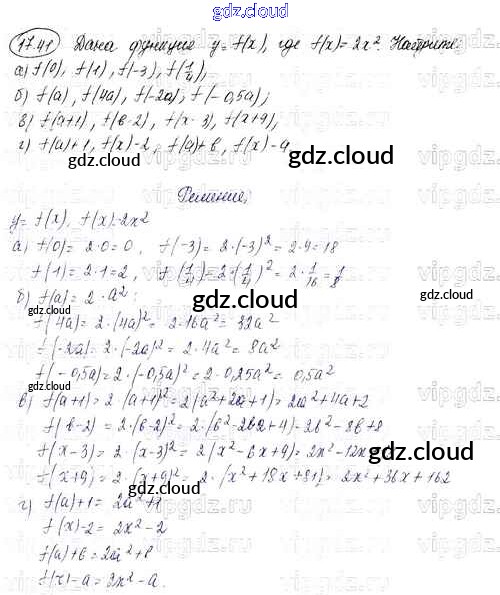 gdz.cloud
17.41 Дана функция y = f(x), где f(x) = 2x². Найдите:
а) f(0), f(1), f(-3), f(1/4);
б) f(a), f(4a), f(-2a), f(-0,5a);
в) f(a+1), f(b-2), f(x-3), f(x+9);
г) f(a)+1, f(x)-2, f(a)+b, f(x)-a
gdz.cloud gdz.cloud
Решение:
y = f(x), f(x)=2x²
а) f(0)= 2·0=0, f(-3)= 2·(-3)²= 2·9=18
f(1)= 2·1=2, f(1/4)=2·(1/4)²= 2·1/16 = 1/8
б) f(a)= 2·a²;
gdz.cloud gdz.cloud gdz.cloud
f(4a)= 2·(4a)²= 2·16a²= 32a²
f(-2a)= 2·(-2a)²= 2·4a²= 8a²
f(-0,5a)= 2·(-0,5a)²= 2·0,25a²= 0,5a²
gdz.cloud
в) f(a+1)= 2·(a+1)²= 2(a²+2a+1)= 2a²+4a+2
f(b-2)= 2·(b-2)²= 2·(b²-2b2+4)=2b²-8b+8
f(x-3)= 2·(x-3)²= 2(x²-6x+9)= 2x²-12x
gdz.cloud
f(x+9)= 2·(x+9)²= 2·(x²+18x+81)= 2x²+36x+162
г) f(a)+1= 2a²+1
gdz.cloud gdz.cloud
f(x)-2= 2x²-2
f(a)+b= 2a²+b
f(x)-a= 2x²-a.
gdz.cloud